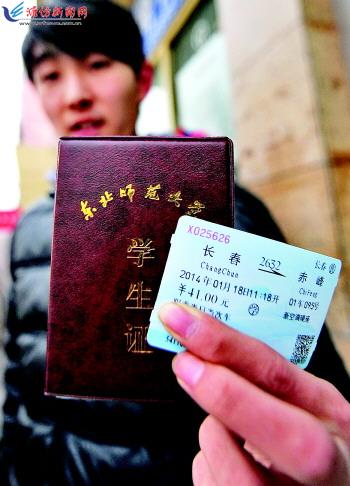 东北师范大学
学
生
证
X025626
长春售
长春 2632 赤峰
ChangChun ChiFeng
2014年01月18日11:18开 01车095号
￥41.00元 学 新空调硬座
限乘当日当次车